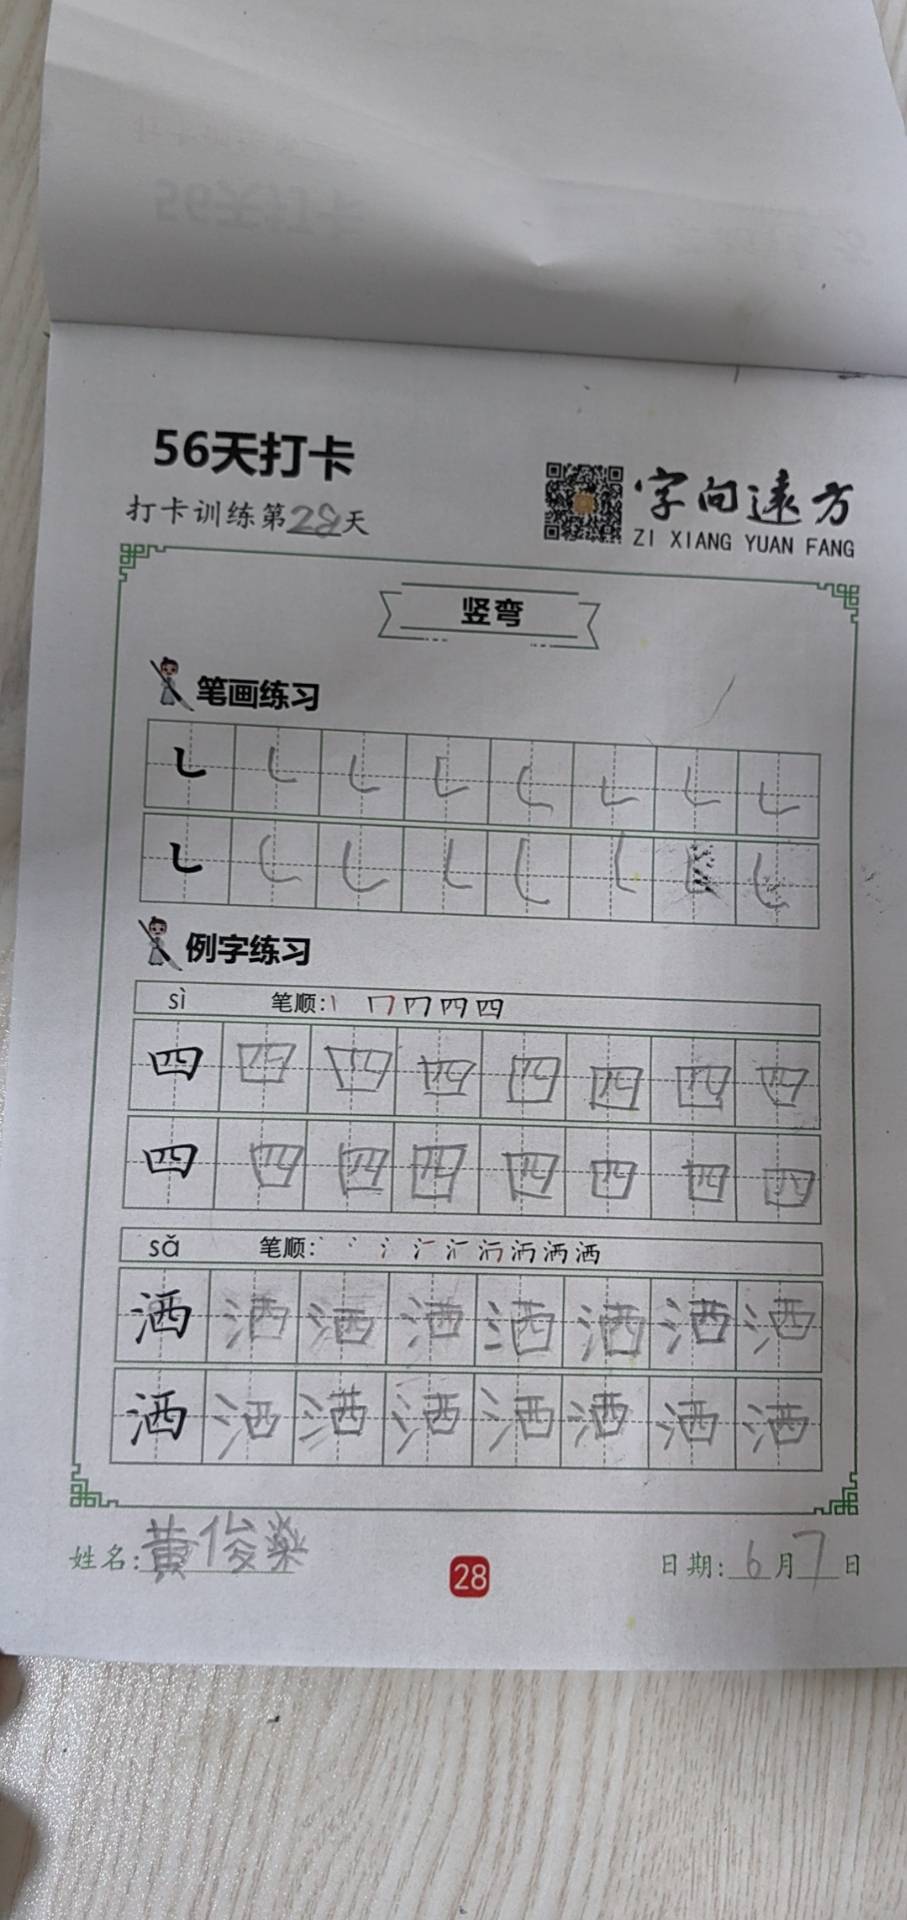 56天打卡
打卡训练第28天
字向远方
ZI XIANG YUAN FANG
竖弯
笔画练习
例字练习
sì 笔顺: 丨 冂 冂 四 四
四 四 四 四 四 四 四 四
四 四 四 四 四 四 四 四
sǎ 笔顺:
洒 洒 洒 洒 洒 洒 洒 洒
洒 洒 洒 洒 洒 洒 洒 洒
姓名:黄俊燊
28
日期:6月7日